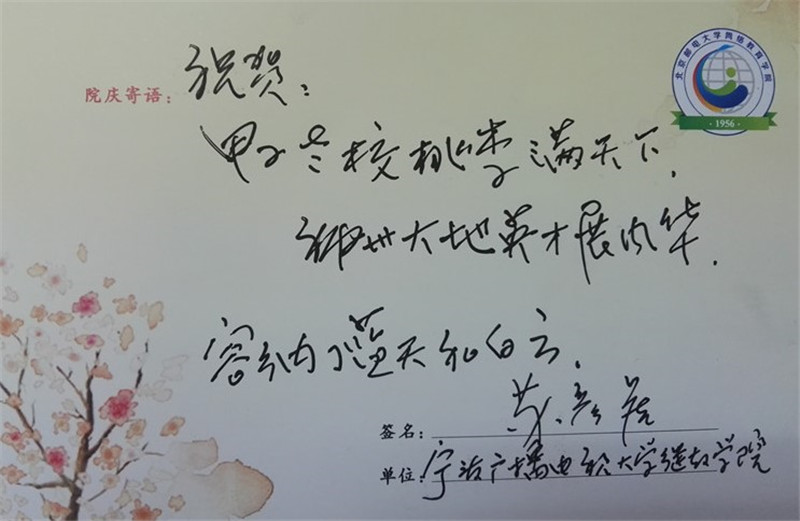 北京邮电大学网络教育学院
·1956·
院庆寄语：祝贺：
甲子名校桃李满天下，
神州大地英才展风华．
容纳了蓝天和白云．
签名：
单位：宁治广播电视大学继教学院